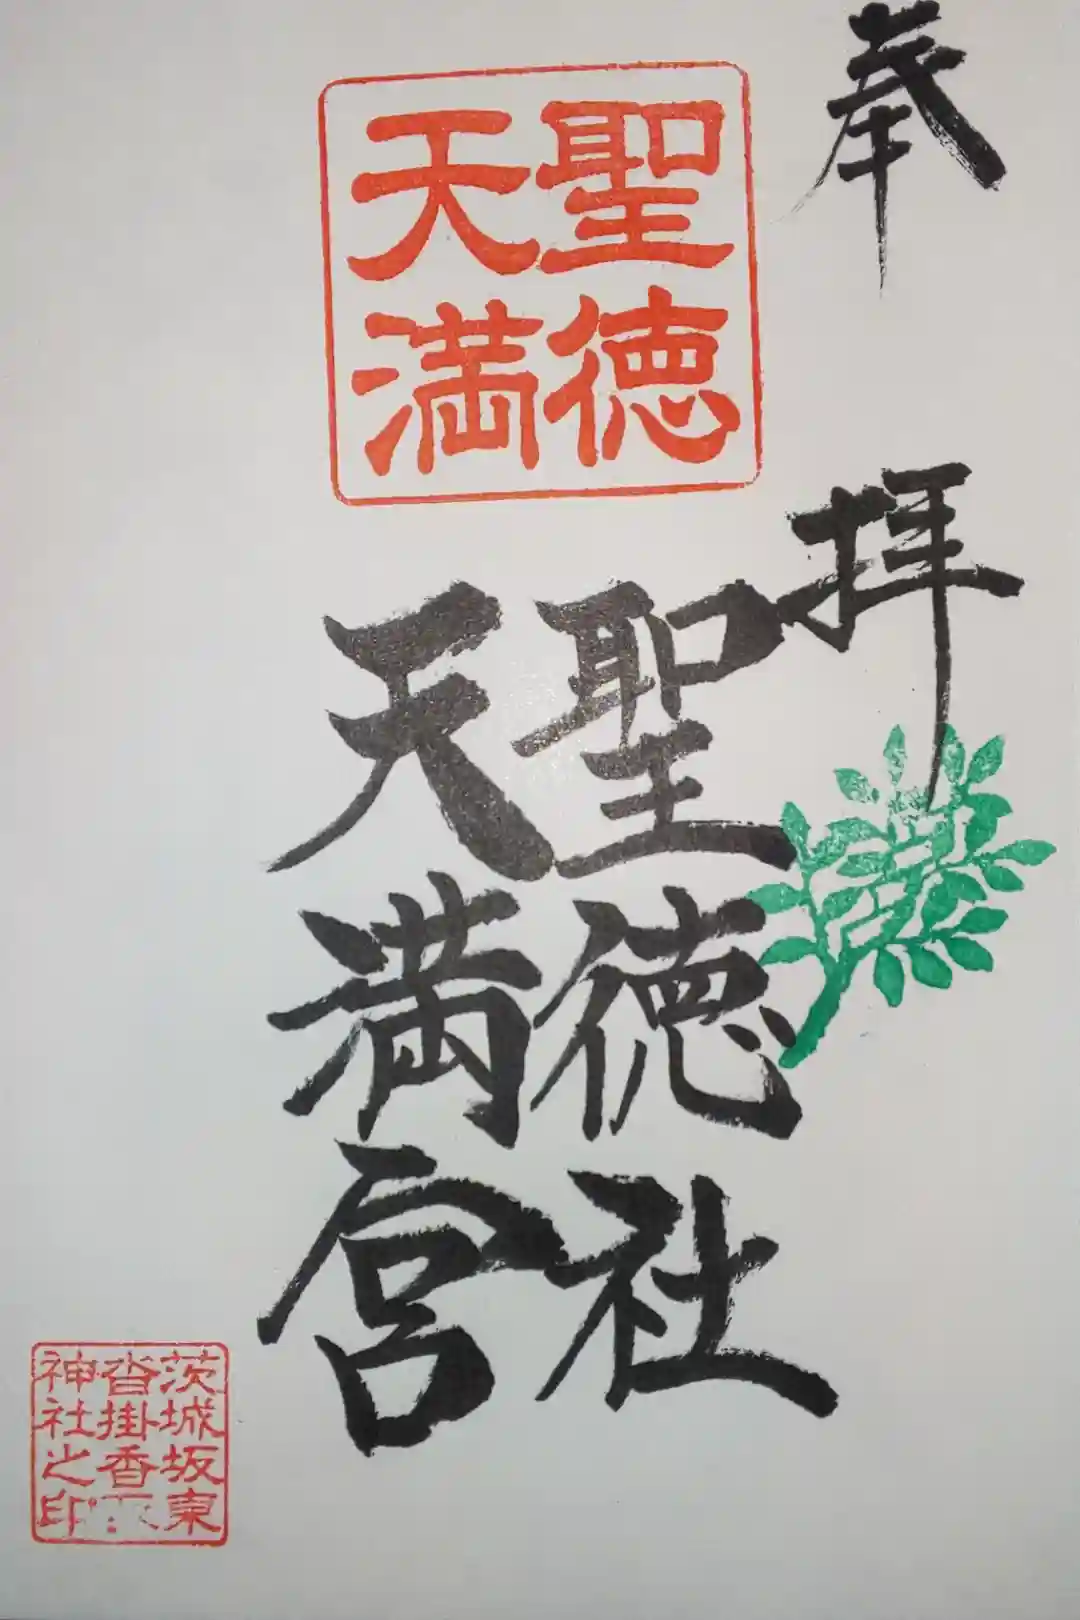 奉拝
聖徳
天満
聖徳社
天満宮
茨城坂東
沓掛香取
神社之印